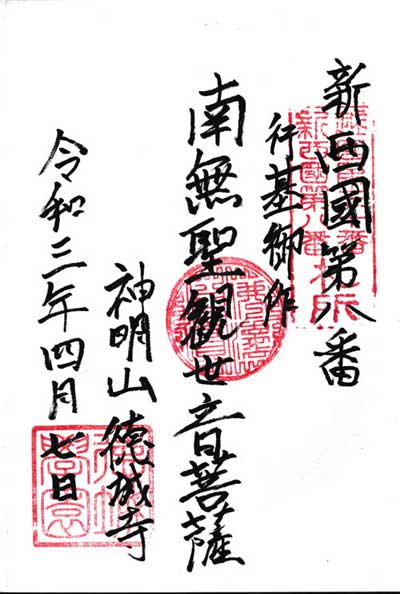 新西國第八番
行基御作
南無聖観世音菩薩
神明山徳城寺
令和三年四月七日